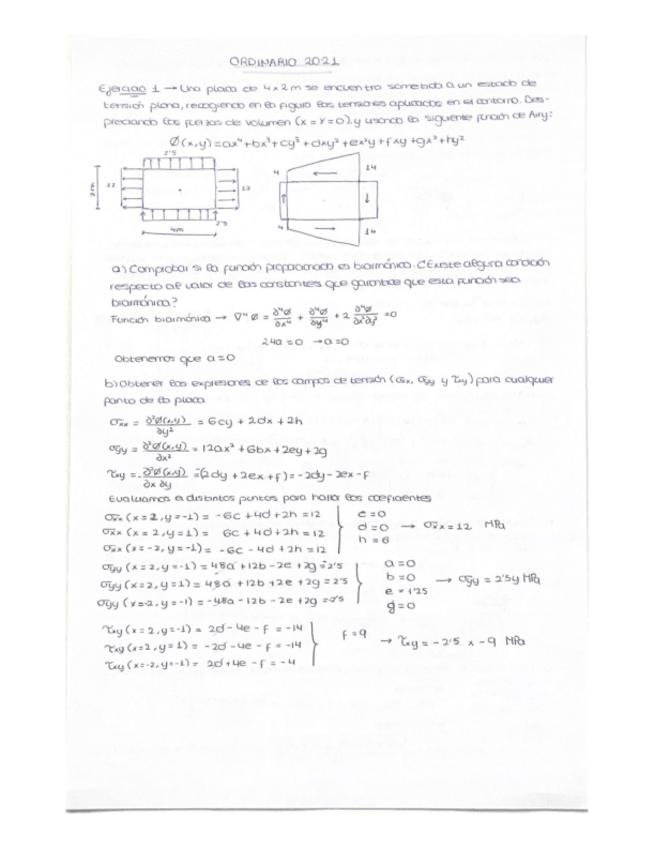 ORDINARIO 2021
Ejercicio 1 → Una placa de 4x2 m se encuentra sometida a un estado de
tensión plana, recogiendo en la figura las tensiones aplicadas en el contorno. Des-
preciando las fuerzas de volumen (x = Y = 0), y usando la siguiente función de Airy:
Ø(x,y) = ax⁴ + bx³ + cy³ + dxy² + ex²y + fxy + gx² + hy²
2'5
2m
12
12
4m
2'5
4
14
4
14
a) Comprobar si la función proporcionada es biarmónica. ¿Existe alguna condición
respecto al valor de las constantes que garantice que esta función sea
biarmónica?
Función biarmónica → ∇⁴Ø = ∂⁴Ø/∂x⁴ + ∂⁴Ø/∂y⁴ + 2 ∂⁴Ø/∂x²∂y² = 0
24a = 0 → a = 0
Obtenemos que a = 0
b) Obtener las expresiones de los campos de tensión (σxx, σyy y τxy) para cualquier
punto de la placa
σxx = ∂²Ø(x,y)/∂y² = 6cy + 2dx + 2h
σyy = ∂²Ø(x,y)/∂x² = 12ax² + 6bx + 2ey + 2g
τxy = - ∂²Ø(x,y)/∂x ∂y = -(2dy + 2ex + f) = -2dy - 2ex - f
Evaluamos a distintos puntos para hallar los coeficientes
σxx (x = 2, y = -1) = -6c + 4d + 2h = 12
σxx (x = 2, y = 1) = 6c + 4d + 2h = 12
σxx (x = -2, y = -1) = -6c - 4d + 2h = 12
c = 0
d = 0 → σxx = 12 MPa
h = 6
σyy (x = 2, y = -1) = 48a + 12b - 2e + 2g = -2'5
σyy (x = 2, y = 1) = 48a + 12b + 2e + 2g = 2'5
σyy (x = -2, y = -1) = -48a - 12b - 2e + 2g = -2'5
a = 0
b = 0
e = 1'25 → σyy = 2'5y MPa
g = 0
τxy (x = 2, y = -1) = 2d - 4e - f = -14
τxy (x = 2, y = 1) = -2d - 4e - f = -14
τxy (x = -2, y = -1) = 2d + 4e - f = -4
f = 9 → τxy = -2'5 x - 9 MPa